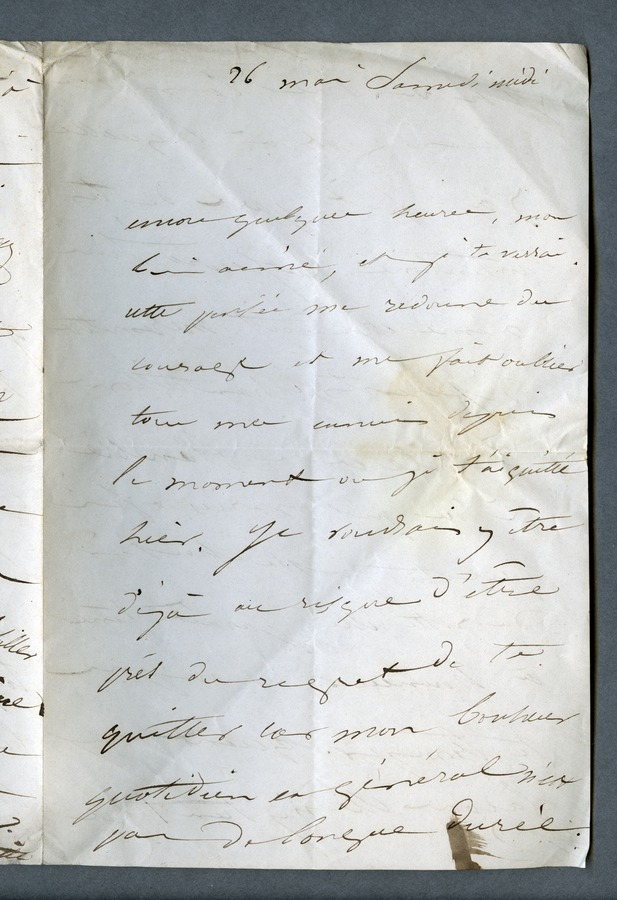 26 mai Samedi midi
encore quelques heures, mon
bien aimé, et je te verrai.
cette pensée me redonne du
courage et me fait oublier
tous mes ennuis depuis
le moment où je t'ai quitté
hier. Je voudrais y être
déjà au risque d'être
près du regret de te
quitter car mon bonheur
quotidien en général n'est
pas de longue durée.